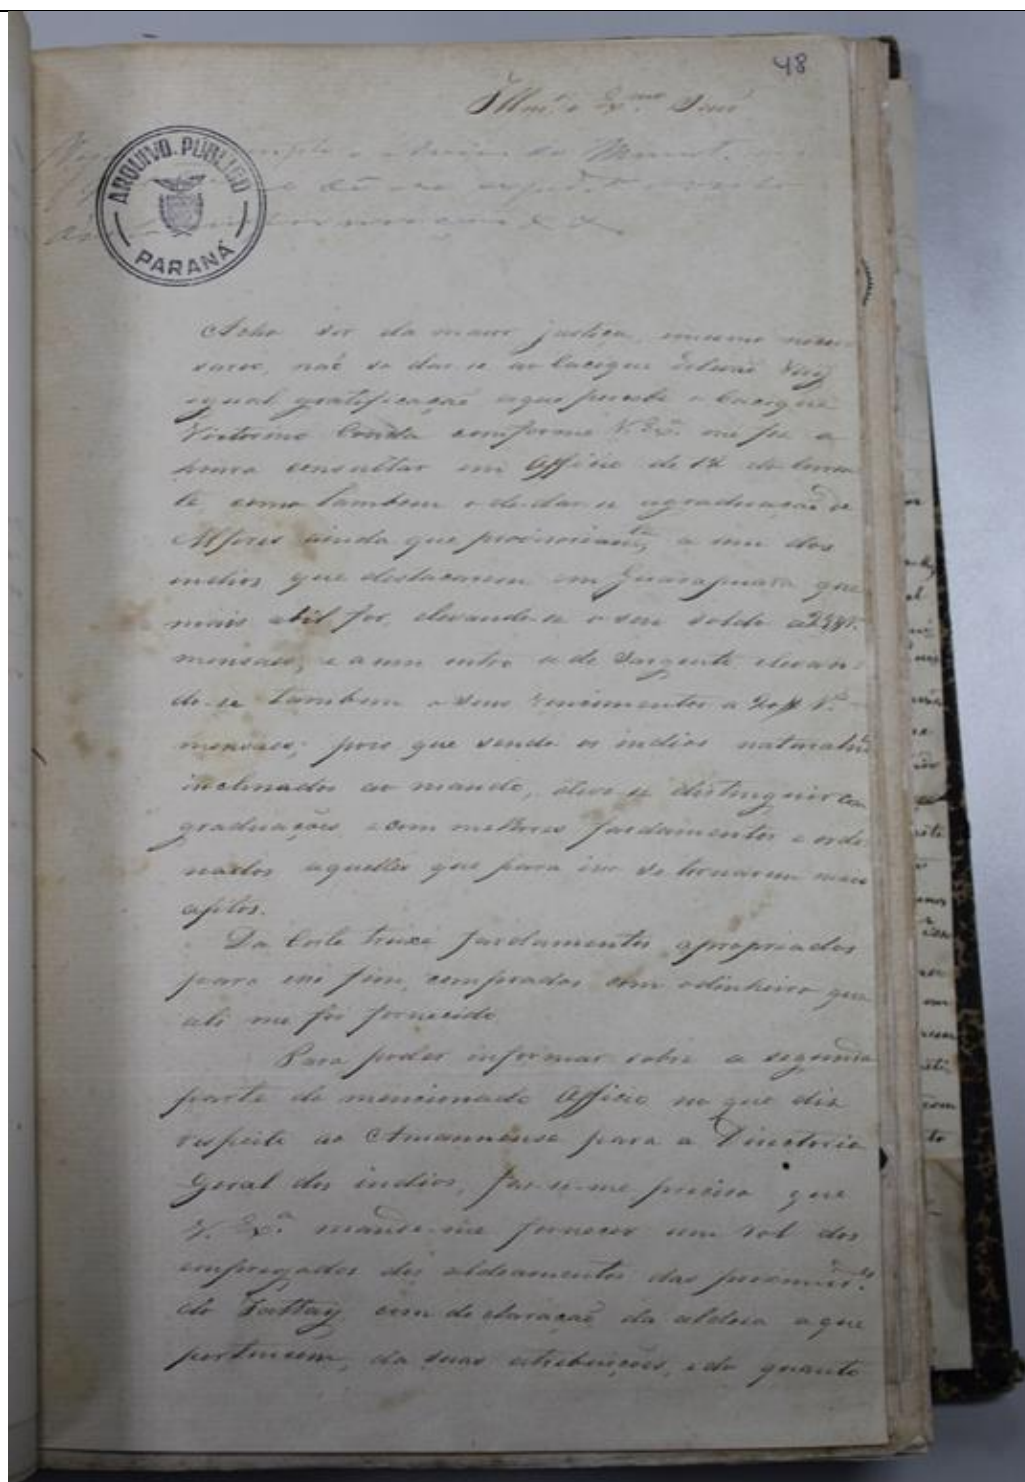 48
Illm.º e Exmo Senr
ARQUIVO PÚBLICO
PARANÁ
Acho ser da maior justiça, mesmo neces
sario, não só dar-se ao Cacique
igual gratificação a que percebe o Cacique
Victorino Condá conforme V. Exª. me fez a
honra consultar em Officio de 12 do corren
te, como tambem o de dar-se a graduação de
Alferes ainda que provisoriamte, a um dos
indios que destacarem em Guarapuava que
mais abil for, elevando-se o seu soldo a
mensaes, e a um outro a de Sargento elevan
do-se tambem o seus vencimentos a
mensaes; pois que sendo os indios naturalmte
inclinados ao mando, deve-se distinguir com
graduações, e com melhores fardamentos e orde
nados aquelles que para isso se tornarem mais
aptos.
Da Corte truxe fardamentos apropriados
para esse fim, comprados com o dinheiro que
ali me foi fornecido.
Para poder informar sobre a segunda
parte do mencionado Officio no que diz
respeito ao Amannuense para a Directoria
Geral dos indios, faz-se-me preciso que
V. Exª. mande-me fornecer um rol dos
empregados dos aldeamentos das
do com declaração da aldeia a que
pertencem, da suas atribuições, e do quanto